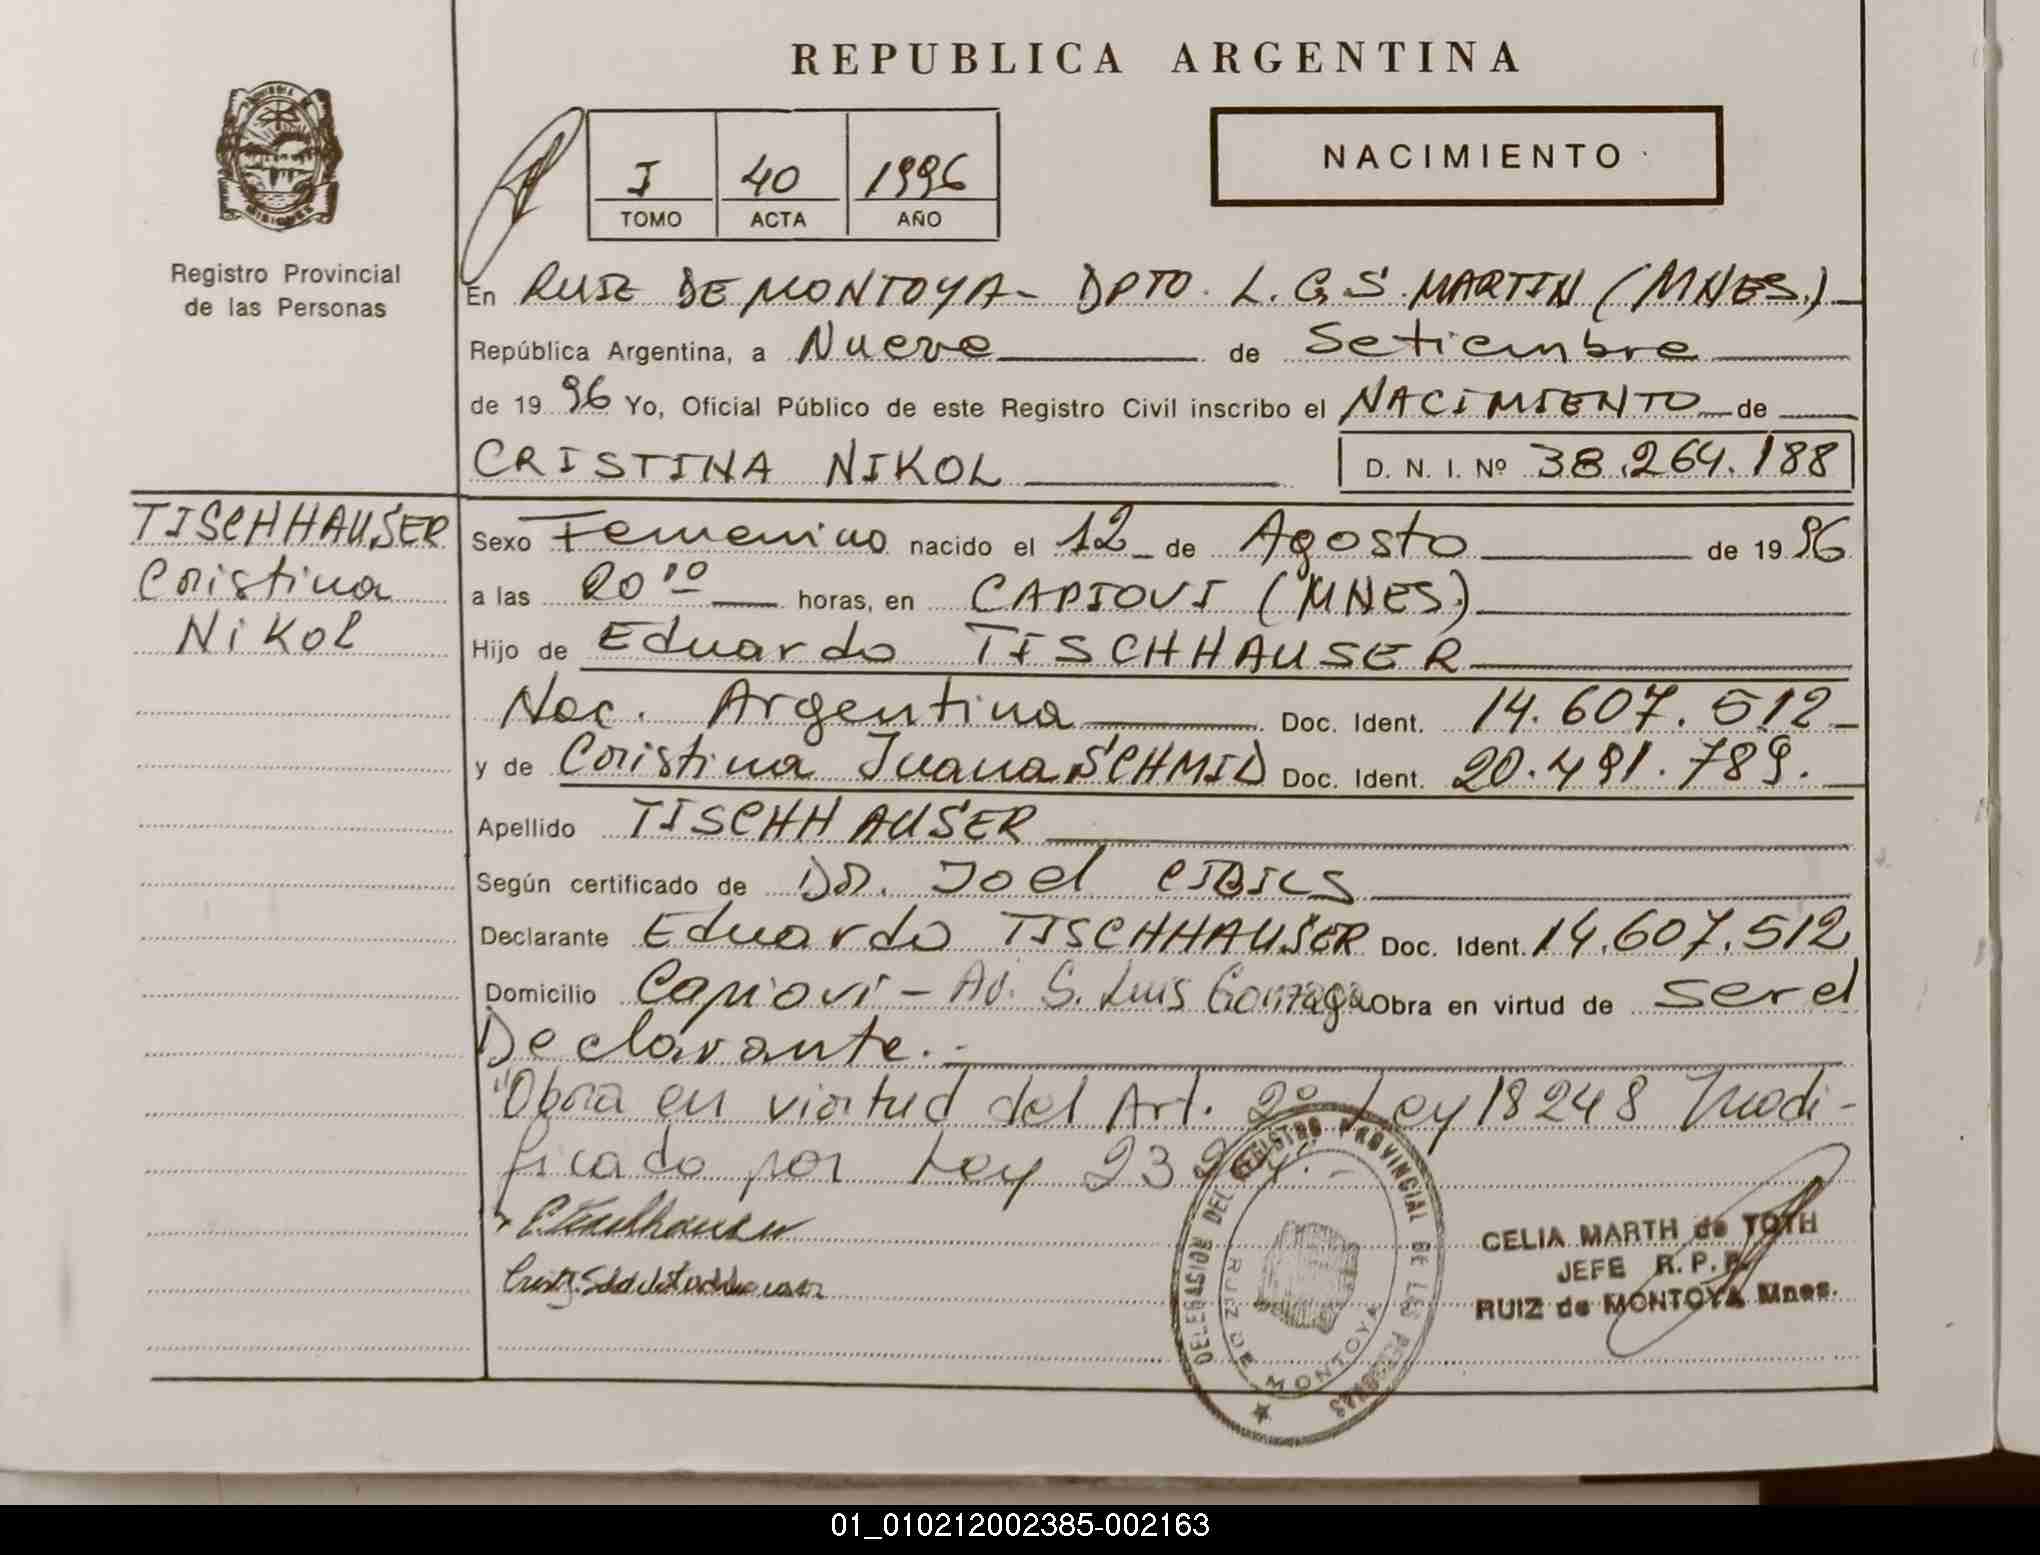 REPUBLICA ARGENTINA
NACIMIENTO
I 40 1996
TOMO ACTA AÑO
Registro Provincial
de las Personas
En RUIZ DE MONTOYA- DPTO. L. G. S. MARTIN (MNES.)
República Argentina, a Nueve de Setiembre
de 1996 Yo, Oficial Público de este Registro Civil inscribo el NACIMIENTO de
CRISTINA NIKOL D. N. I. Nº 38.264.188
TISCHHAUSER
Cristina
Nikol
Sexo Femenino nacido el 12 de Agosto de 1996
a las 20 10 horas, en CAPIOVI (MNES)
Hijo de Eduardo TISCHHAUSER
Nac. Argentina Doc. Ident. 14.607.512
y de Cristina Juana SCHMID Doc. Ident. 20.491.789.
Apellido TISCHHAUSER
Según certificado de DR. Joel CIBILS
Declarante Eduardo TISCHHAUSER Doc. Ident. 14.607.512
Domicilio Capiovi - Av. S. Luis Gonzaga Obra en virtud de ser el
Declarante.-
"Obra en virtud del Art. 2º Ley 18248 Modi-
ficado por Ley
DELEGASION DEL REGISTRO PROVINCIAL DE LAS PERSONAS
RUIZ DE MONTOYA
CELIA MARTH de TOTH
JEFE R.P.P.
RUIZ de MONTOYA Mnes.
01_010212002385-002163